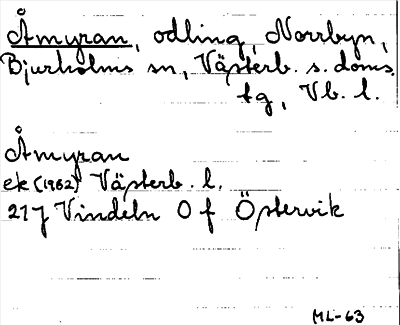 Åmyran, odling, Norrbyn,
Bjurholms sn, Västerb. s. doms.
tg, Vb. l.
Åmyran
ek (1962) Västerb. l.
21 J Vindeln 0 f Östervik
ML-63